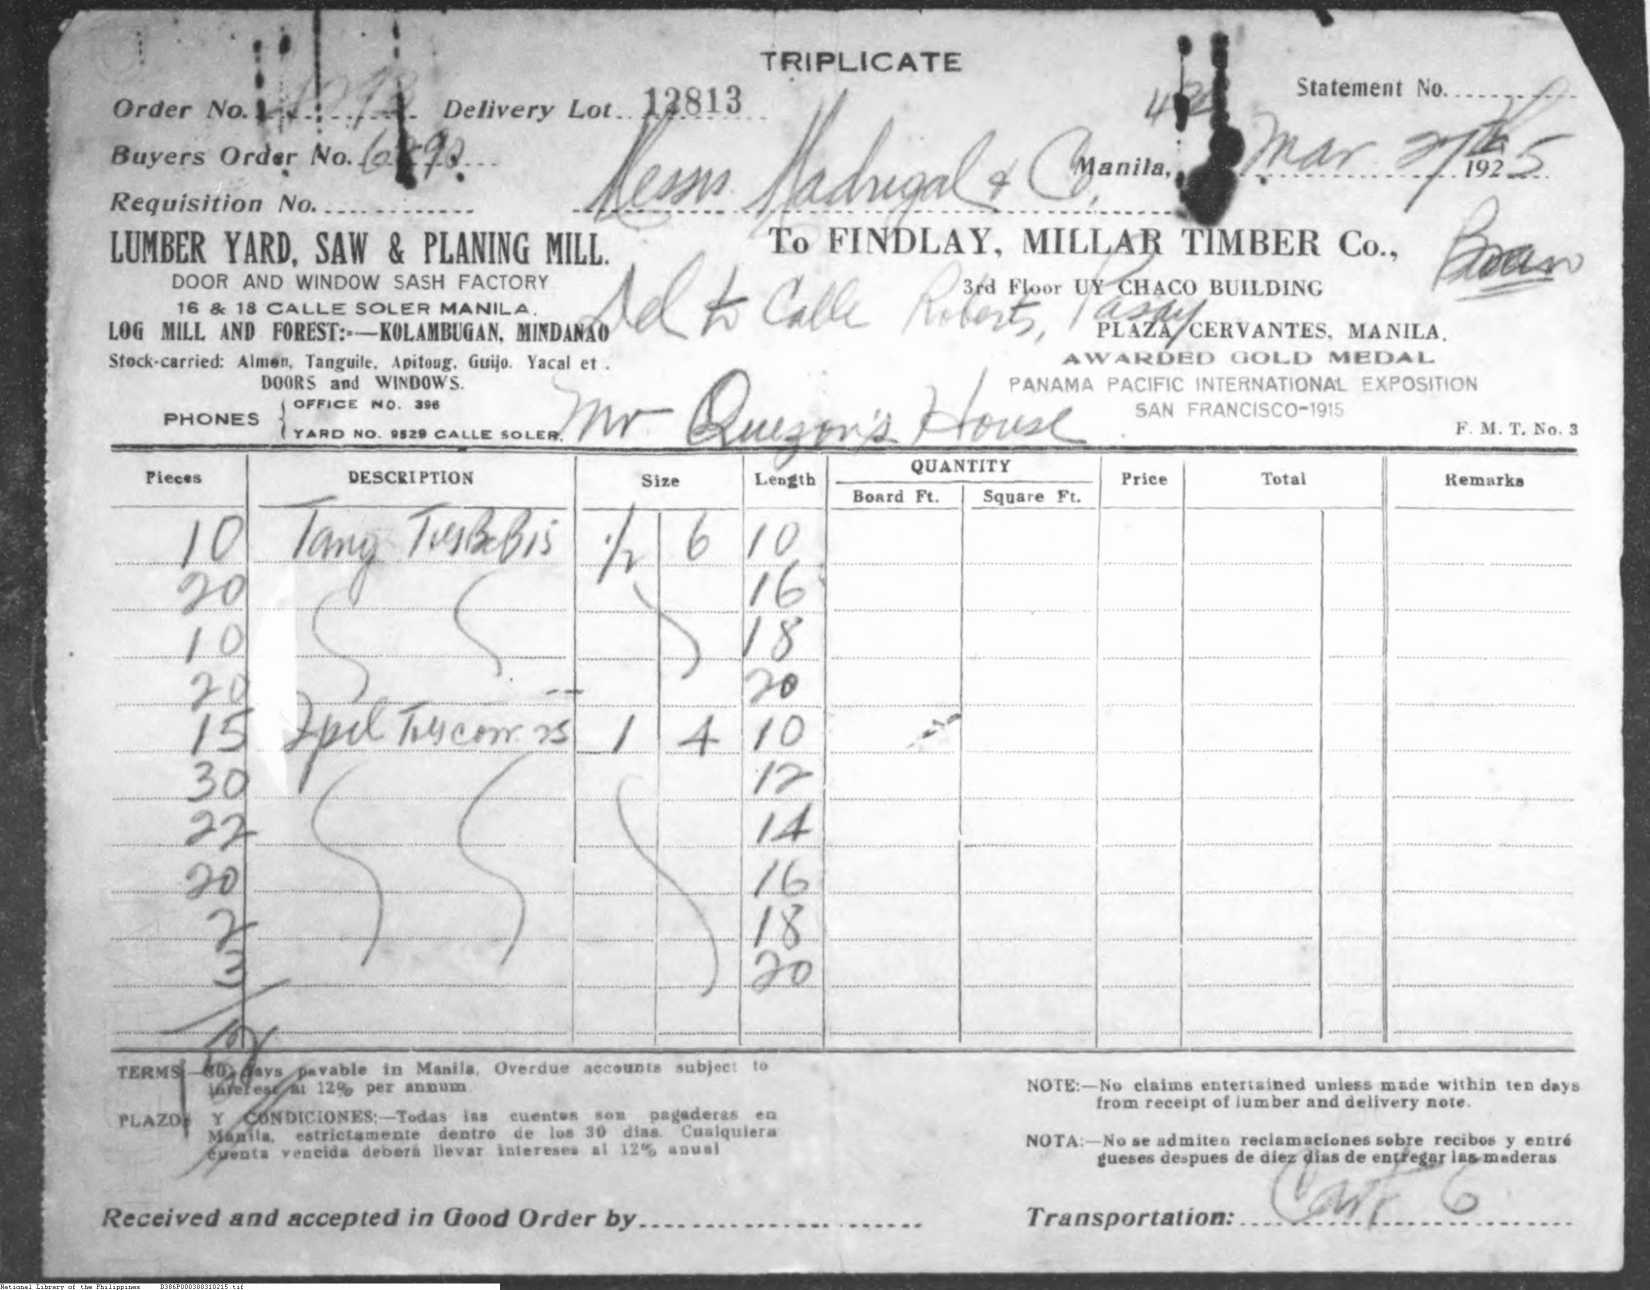 TRIPLICATE
Statement No.
Order No. Delivery Lot 12813
Buyers Order No.
Manila, Mar. 27th 1925
Requisition No.
Messrs. Madrigal & Co.
LUMBER YARD, SAW & PLANING MILL.
To FINDLAY, MILLAR TIMBER Co.,
DOOR AND WINDOW SASH FACTORY
3rd Floor UY CHACO BUILDING
16 & 18 CALLE SOLER MANILA.
Del to Calle Roberts, Pasay
LOG MILL AND FOREST:-—KOLAMBUGAN, MINDANAO
PLAZA CERVANTES, MANILA.
Stock-carried: Almon, Tanguile, Apitong, Guijo. Yacal et .
AWARDED GOLD MEDAL
DOORS and WINDOWS.
PANAMA PACIFIC INTERNATIONAL EXPOSITION
PHONES
OFFICE NO. 396
SAN FRANCISCO-1915
YARD NO. 9529 CALLE SOLER.
Mr Quezon's House
F. M. T. No. 3
Pieces DESCRIPTION Size Length QUANTITY Price Total Remarks
Board Ft. Square Ft.
10 Tang 1/2 6 10
20 16
10 18
20 20
15 Ipil 1 4 10
30 12
22 14
20 16
2 18
3 20
TERMS—30 days payable in Manila. Overdue accounts subject to
interest at 12% per annum.
PLAZO Y CONDICIONES:—Todas las cuentas son pagaderas en
Manila, estrictamente dentro de los 30 dias. Cualquiera
cuenta vencida deberá llevar intereses al 12% anual
NOTE:—No claims entertained unless made within ten days
from receipt of lumber and delivery note.
NOTA:—No se admiten reclamaciones sobre recibos y entré
gueses despues de diez dias de entregar las maderas
Received and accepted in Good Order by
Transportation: Cart 6
National Library of the Philippines B386P000308310215.tif